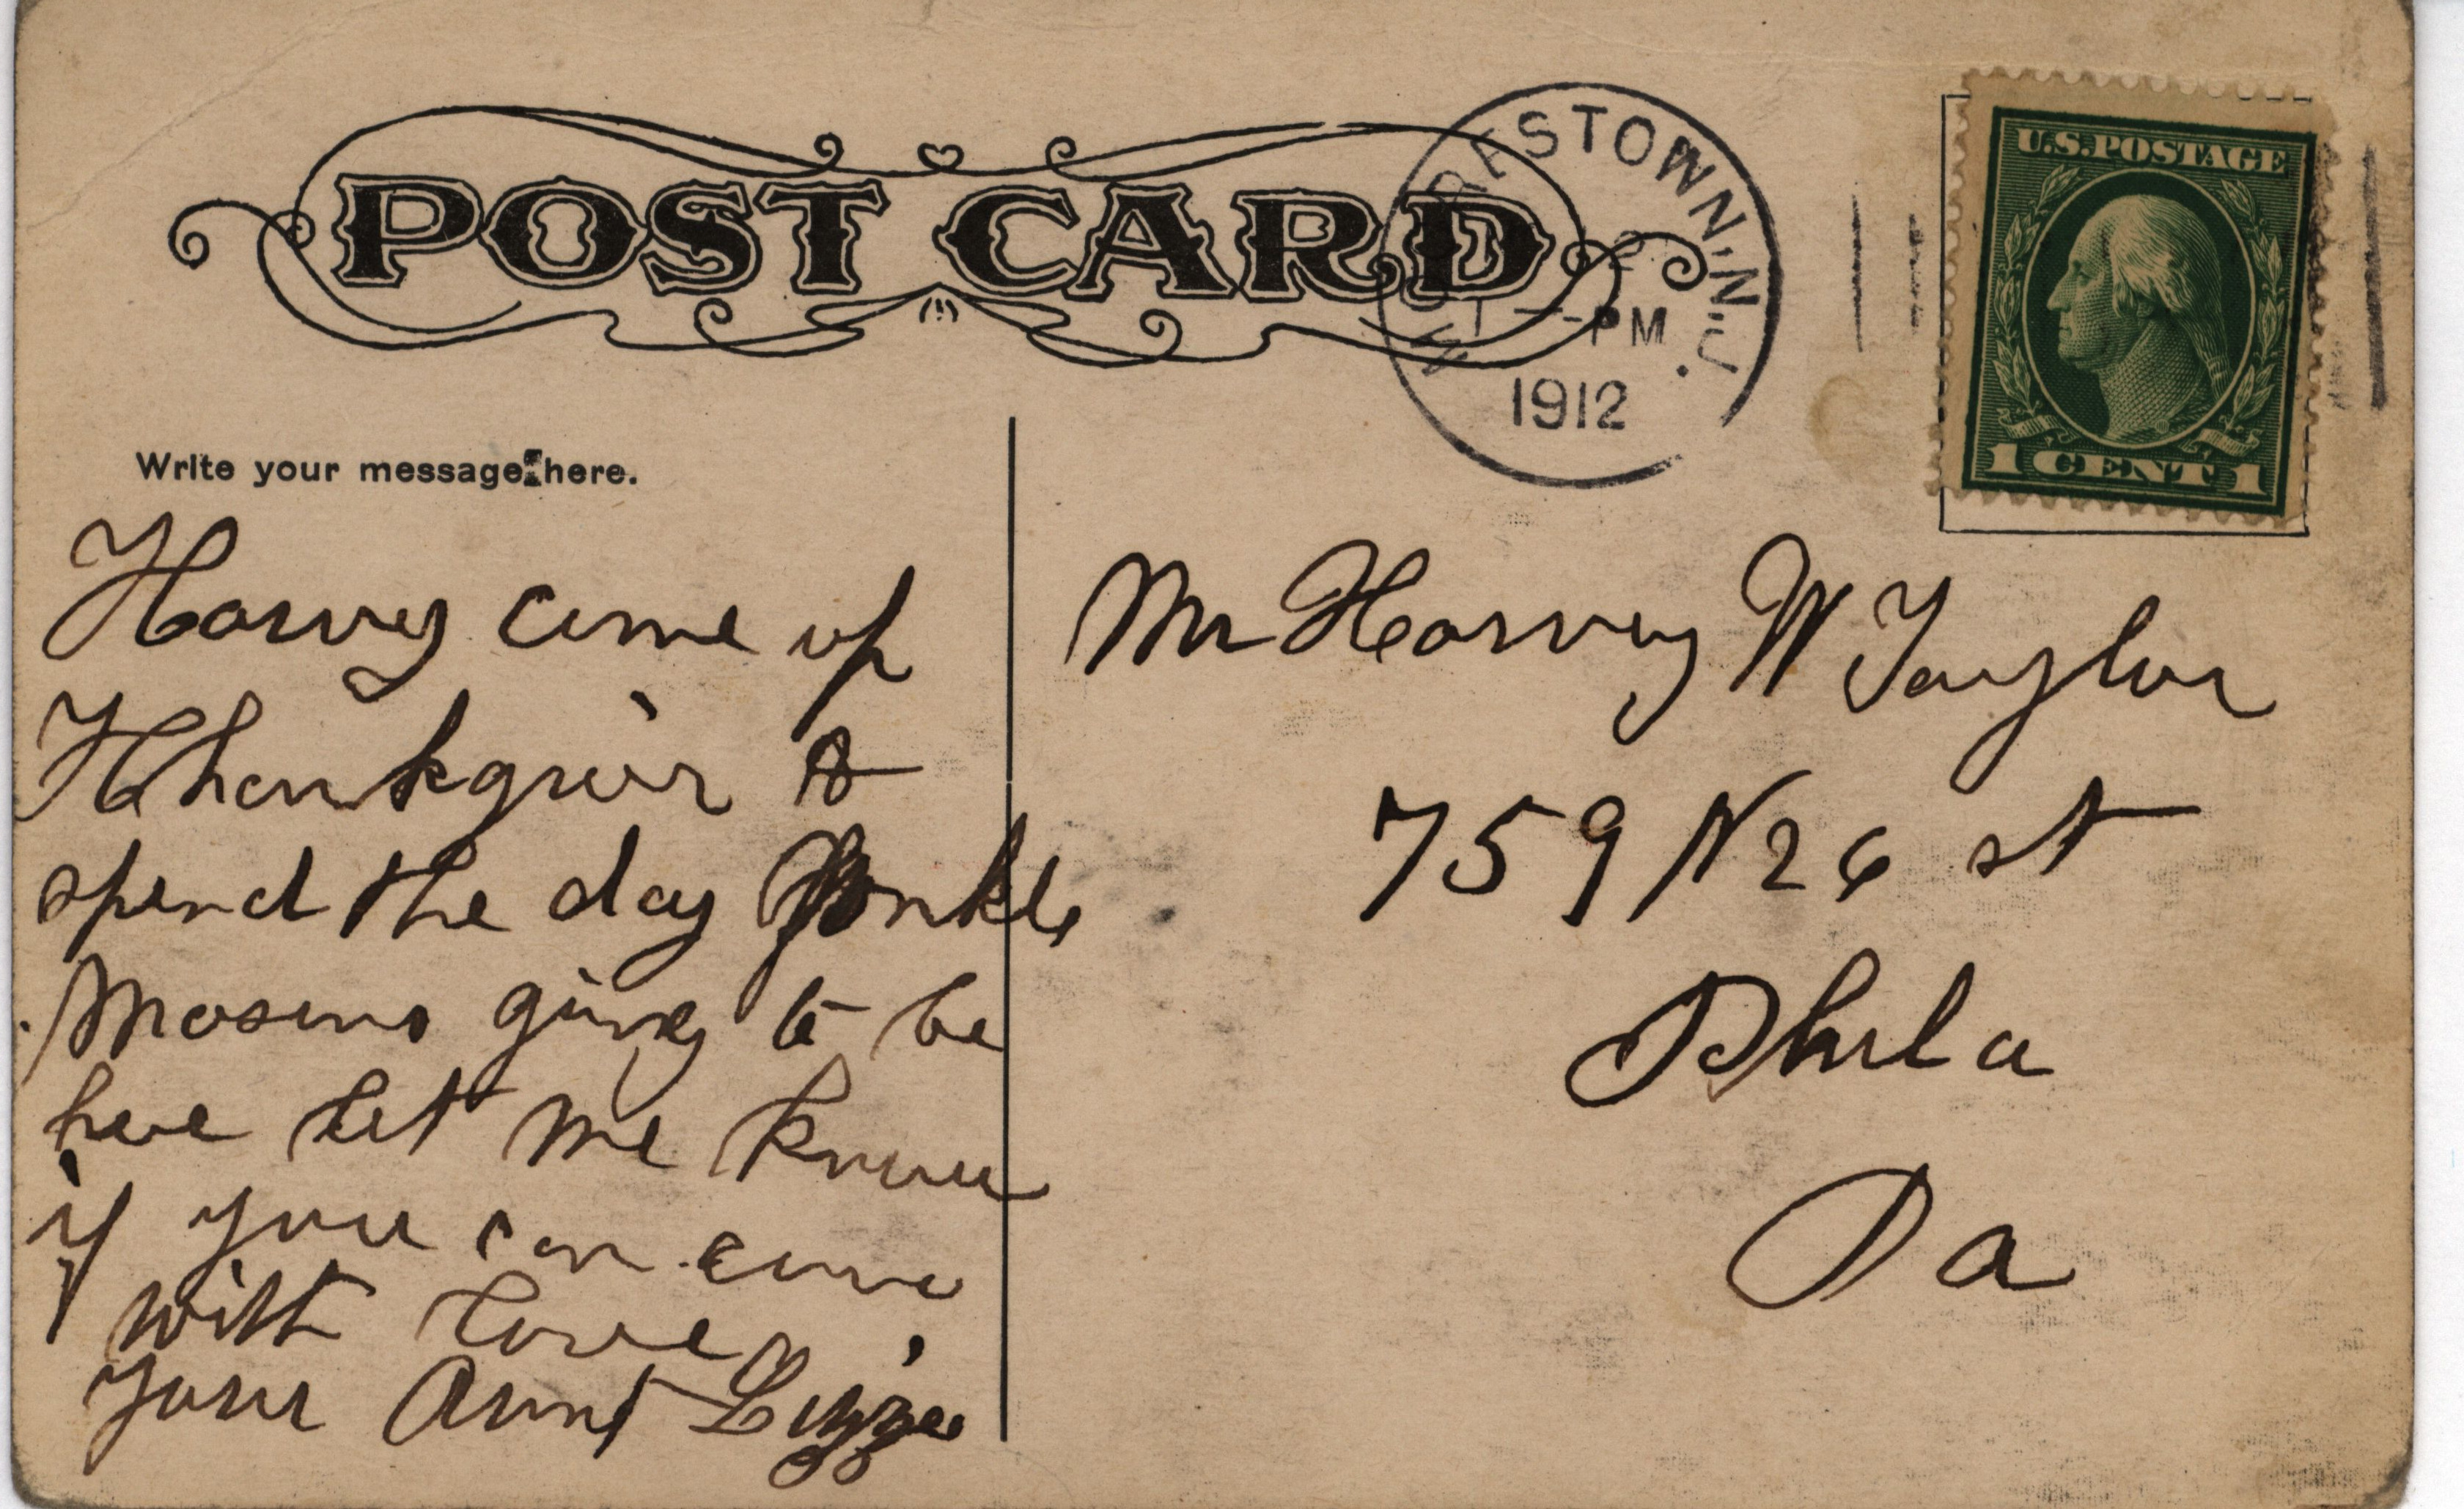 POST CARD
MOORESTOWN, N.J.
1 - PM
1912
U.S. POSTAGE
1 CENT 1
Write your message here.
Harvey come up
Thankgivin to
spend the day
going to be
here let me know
if you can come
with love
your Aunt Lizzie
Mr Harvey W Taylor
759 N 26 st
Phila
Pa